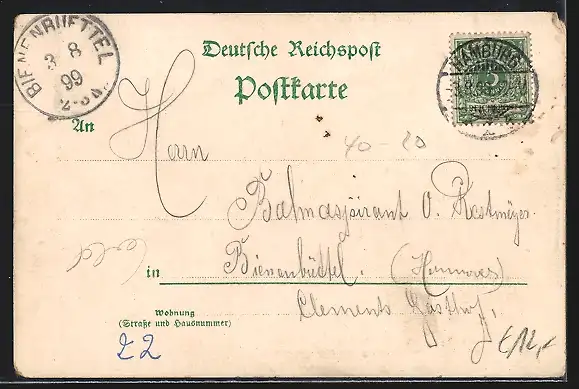 BIENENBUETTEL
3 8
99
2-3N.
Deutsche Reichspost
Postkarte
HAMBURG
5
An
Herrn
40-20
Bahnaspirant O. Rastmeyer
in Bienenbüttel. (Hannover)
Clements Gasthof,
Wohnung
(Straße und Hausnummer)
Z2
€12,-